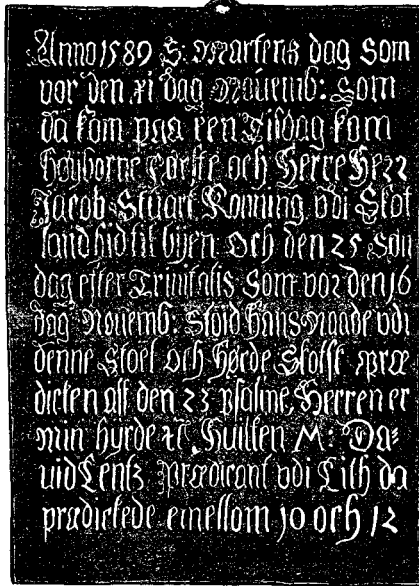 Anno 1589 S: Martens dag Som
vor den xi dag Nouemb: Som
da kom paa ren Tisdag kom
Høyborne Første och Herre Herr
Jacob Stuart Konning vdi Skot
land hid til byen Och den 25 Søn
dag effter Trinitatis Som vor den 16
dag Nouemb: Stoid hans Naade vdi
denne Stoel och Hørde Skotsk præ
dicken aff den 23 psalme, Herren er
min hyrde etc Huilken M: Da=
uid Lentz Prædicant vdi Lith da
prædickede emellom 10 och 12